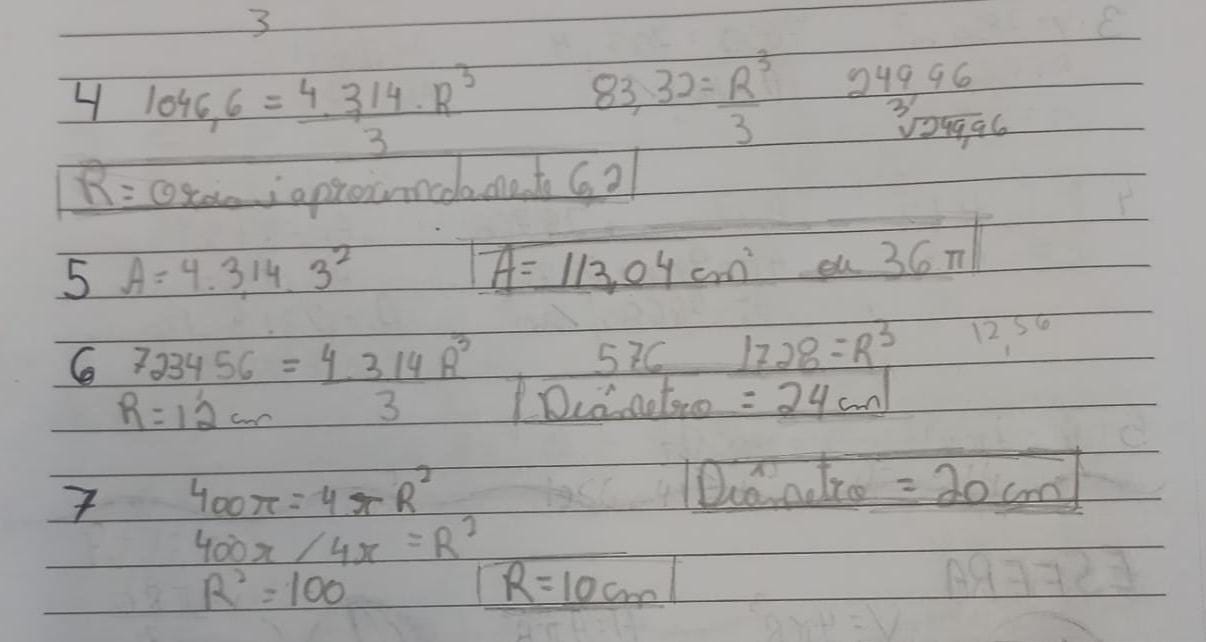 3
4 1046,6 = 4.3,14.R³ 83,32 = R³ 249,96
3 3 ³√249,96
R = aproximadamente 6,2
5 A = 4.3,14.3² A = 113,04 cm² ou 36π
6 723456 = 4.3,14 R³ 576 1728 = R³ 12,56
R = 12 cm 3 Diâmetro = 24 cm
7 400π = 4πR² Diâmetro = 20 cm
400π / 4π = R²
R² = 100 R = 10 cm